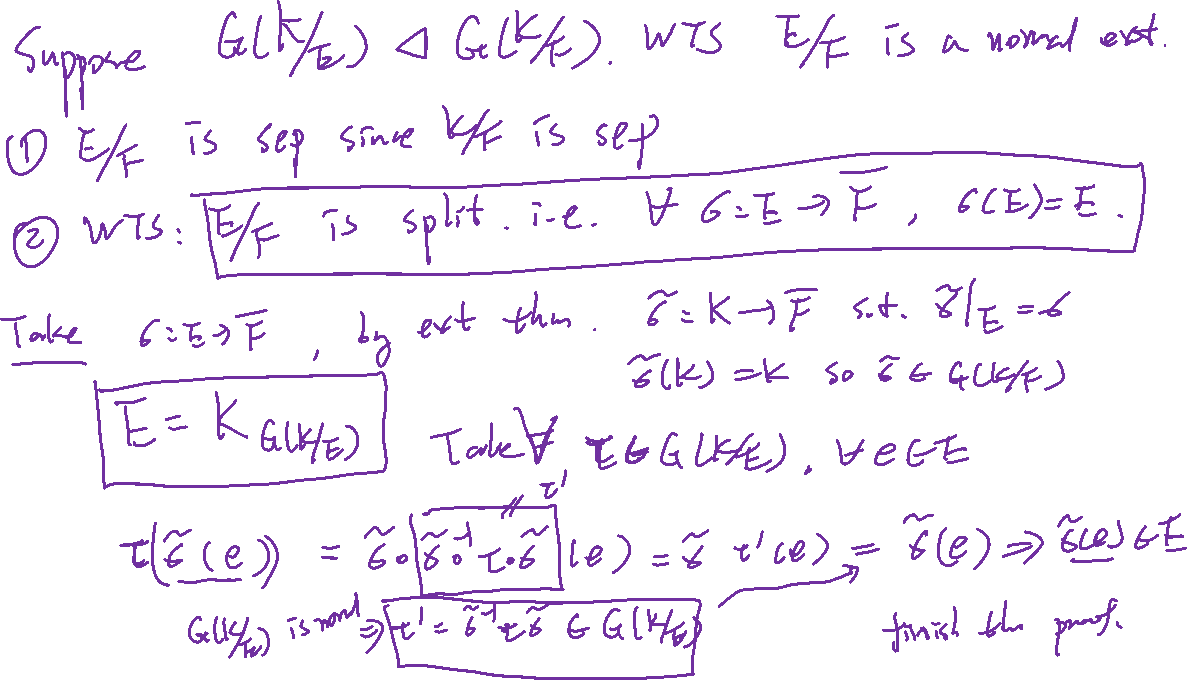 Suppose G(K/E) ◁ G(K/F). WTS E/F is a normal ext.
① E/F is sep since K/F is sep
② WTS: E/F is split. i.e. ∀ σ: E → F̄, σ(E) = E.
Take σ: E → F̄, by ext thm. σ̃: K → F̄ s.t. σ̃|_E = σ
σ̃(K) = K so σ̃ ∈ G(K/F)
E = K_{G(K/E)} Take ∀ τ ∈ G(K/E), ∀ e ∈ E
// τ'
τ(σ̃(e)) = σ̃∘σ̃⁻¹∘τ∘σ̃(e) = σ̃ τ'(e) = σ̃(e) ⇒ σ̃(e) ∈ E
G(K/E) is normal ⇒ τ' = σ̃⁻¹τσ̃ ∈ G(K/E) finish the proof.